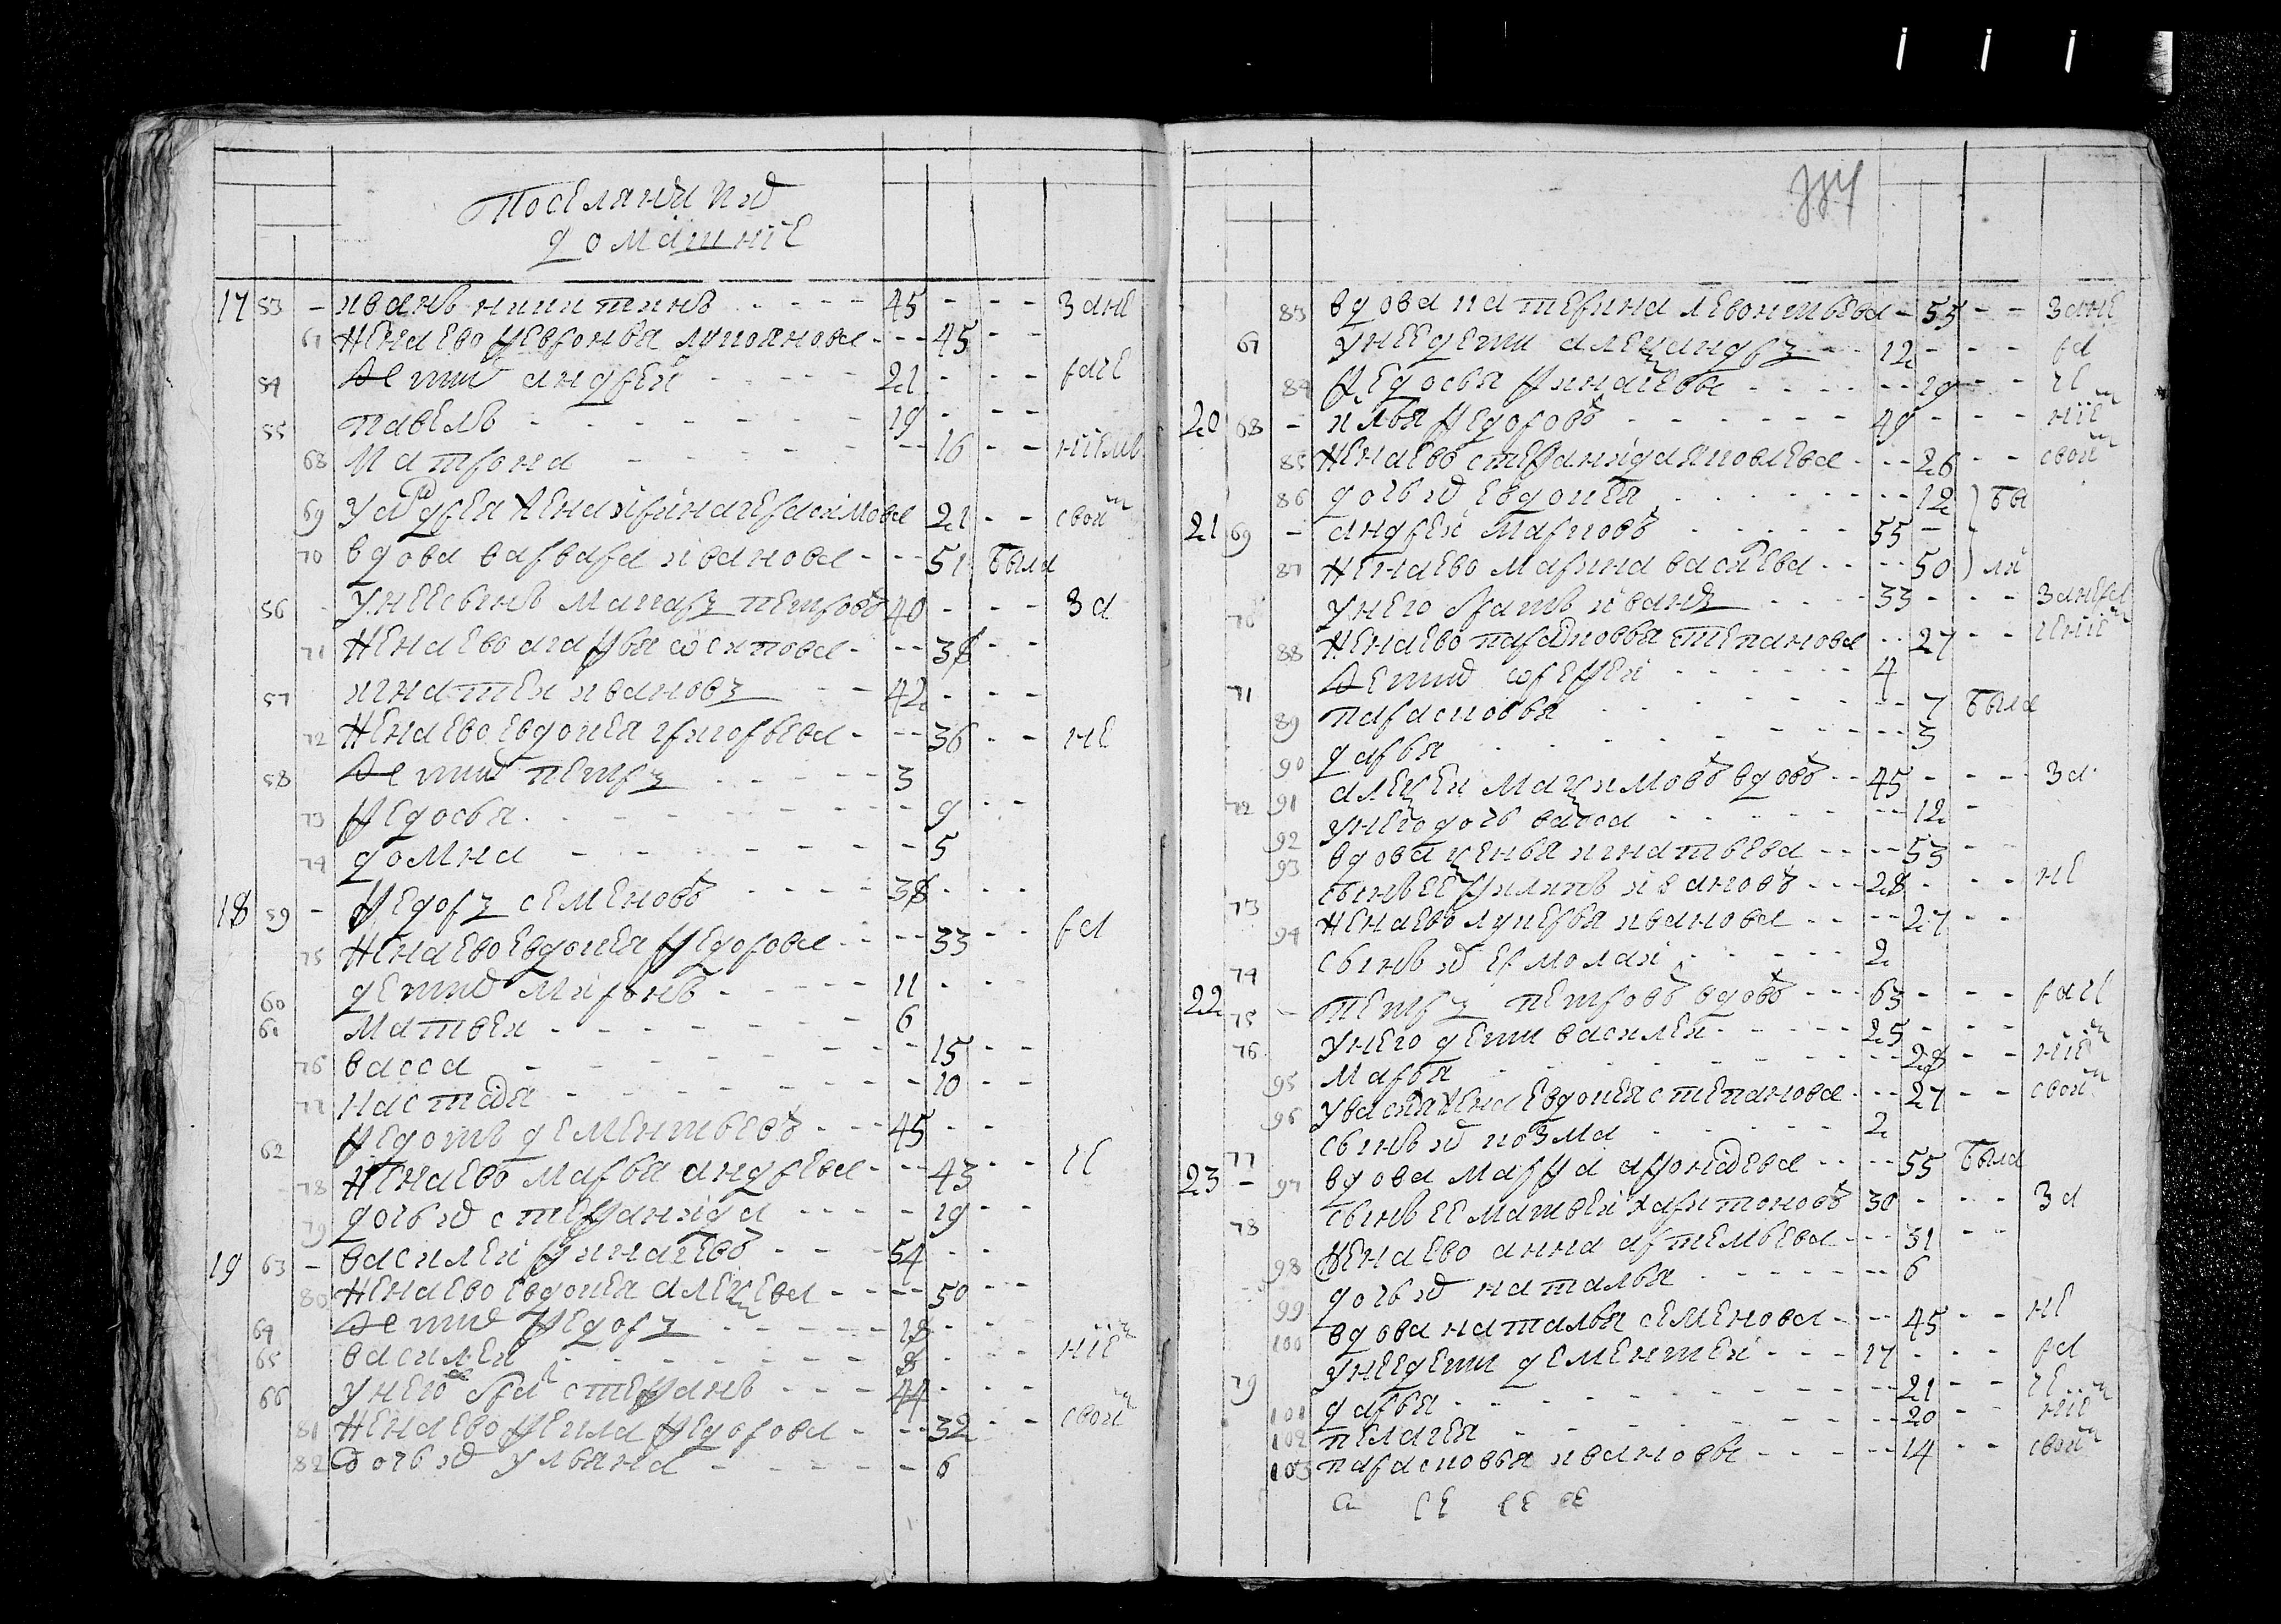 Поселяне и их
домашніе
17 53 - иванъ никитинъ 45 - - - За не
61 жена ево Февронья лукоянова - - - 45 - -
54 Дети андрей 21 - - - раче
55 павелъ 19 - - -
68 матрона - - 16 - - ніемъ
69 У андрея жена ирина герасимова 21 - - свои
70 вдова варвара иванова - - - 51 была
56 У нее сынъ макаръ петровъ 40 - - - За
71 жена ево агафья осипова - - - 38 - -
57 игнатеи ивановъ 42 - - -
72 жена ево евдокея григорьева - - - 36 - - не
58 Дети их петръ 3
73 Федосья 9 - -
74 домна 5
18 59 - Федоръ семеновъ 38 - - -
75 жена ево евдокея Федорова - - - 33 - - ра
60 дети их миронъ 11 - - -
61 матвеи 6
76 васса 15 - -
77 настасья 10 - -
62 Федотъ дементьевъ 45 - -
78 жена ево марья андреева - - - 43 - - че
79 дочь их стефанида 19 - -
19 63 - василеи Финагеевъ 54 - -
80 жена ево евдокея алексеева - - - 50 - -
64 Дети их Федоръ 18 - - -
65 василеи 8 - - - ніе
66 У него братъ стефанъ 44 - - -
81 жена ево Фекла Федорова - - - 32 - - свои
82 дочь их ульяна 6
83 вдова катерина левонтьева - 55 - - За не
67 У нее дети александръ 12 - - - ра
84 Федосья Финагеевы 19 - - че
20 68 - илья Федоровъ 49 - - - ніе
85 жена евo стефанида яковлева - - - 26 - - свои
86 дочь их евдокея 12 бы
21 69 - андреи марковъ 55 -
87 жена ево марина васильева - - - 50 ли
70 У него братъ иванъ 33 - - - За не ра
88 жена ево парасковья степанова - - 27 - - чение
71 Дети их ефрем 4
89 парасковья 7 была
90 дарья 3
72 91 алексеи максимовъ вдовъ - - 45 - - - За
92 У него дочь васса 12 -
93 вдова ксенья игнатьева - - - 53 - -
73 сынъ ее Филипъ ивановъ - - - 28 - - - не
94 жена ево лукерья иванова - - - 27 - -
74 сынъ их ермолаи 2
22 75 - петръ петровъ вдовъ - - - 63 - - - раче
76 У него дети василеи 25 - - -
95 марья 28 - - ніе
96 У василья жена евдокея степанова - - - 27 - - свои
77 сынъ их козма 2
23 - 97 вдова марфа афонасьева - - - 55 была
78 сынъ ее матвеи харитоновъ 30 - - - За
98 жена ево анна артемьева - - - 31 - -
99 дочь их наталья 6
100 вдова наталья семенова - - - 45 - - не
79 У нее дети дементеи 17 - - - ра
101 дарья 21 - - че
102 пелагея 20 - ніе
103 парасковья ивановы 14 - - свои